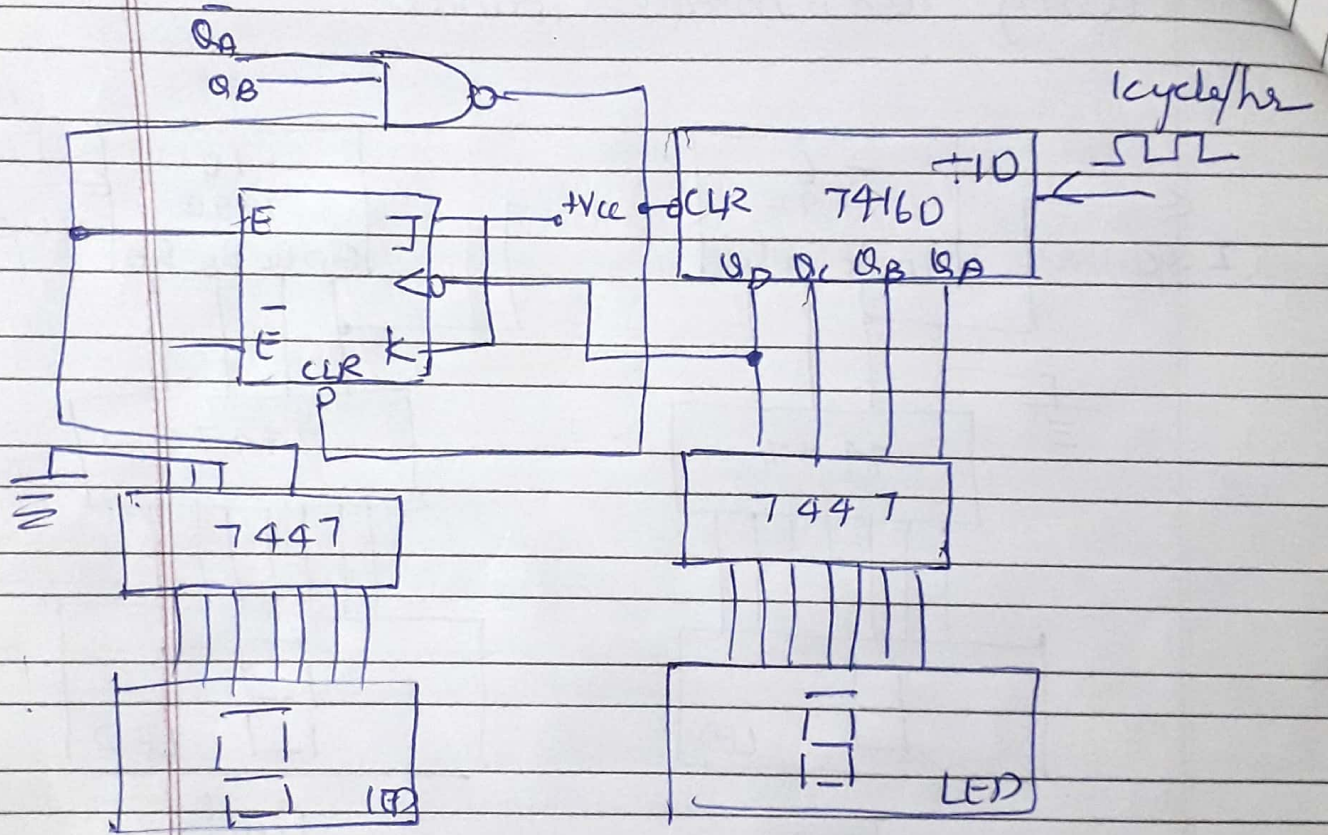 Q̅A
QB
1cycle/hr
÷10
E J +Vcc CLR 74160
QD QC QB QA
E̅ K
CLR
7447
7447
LED
LED